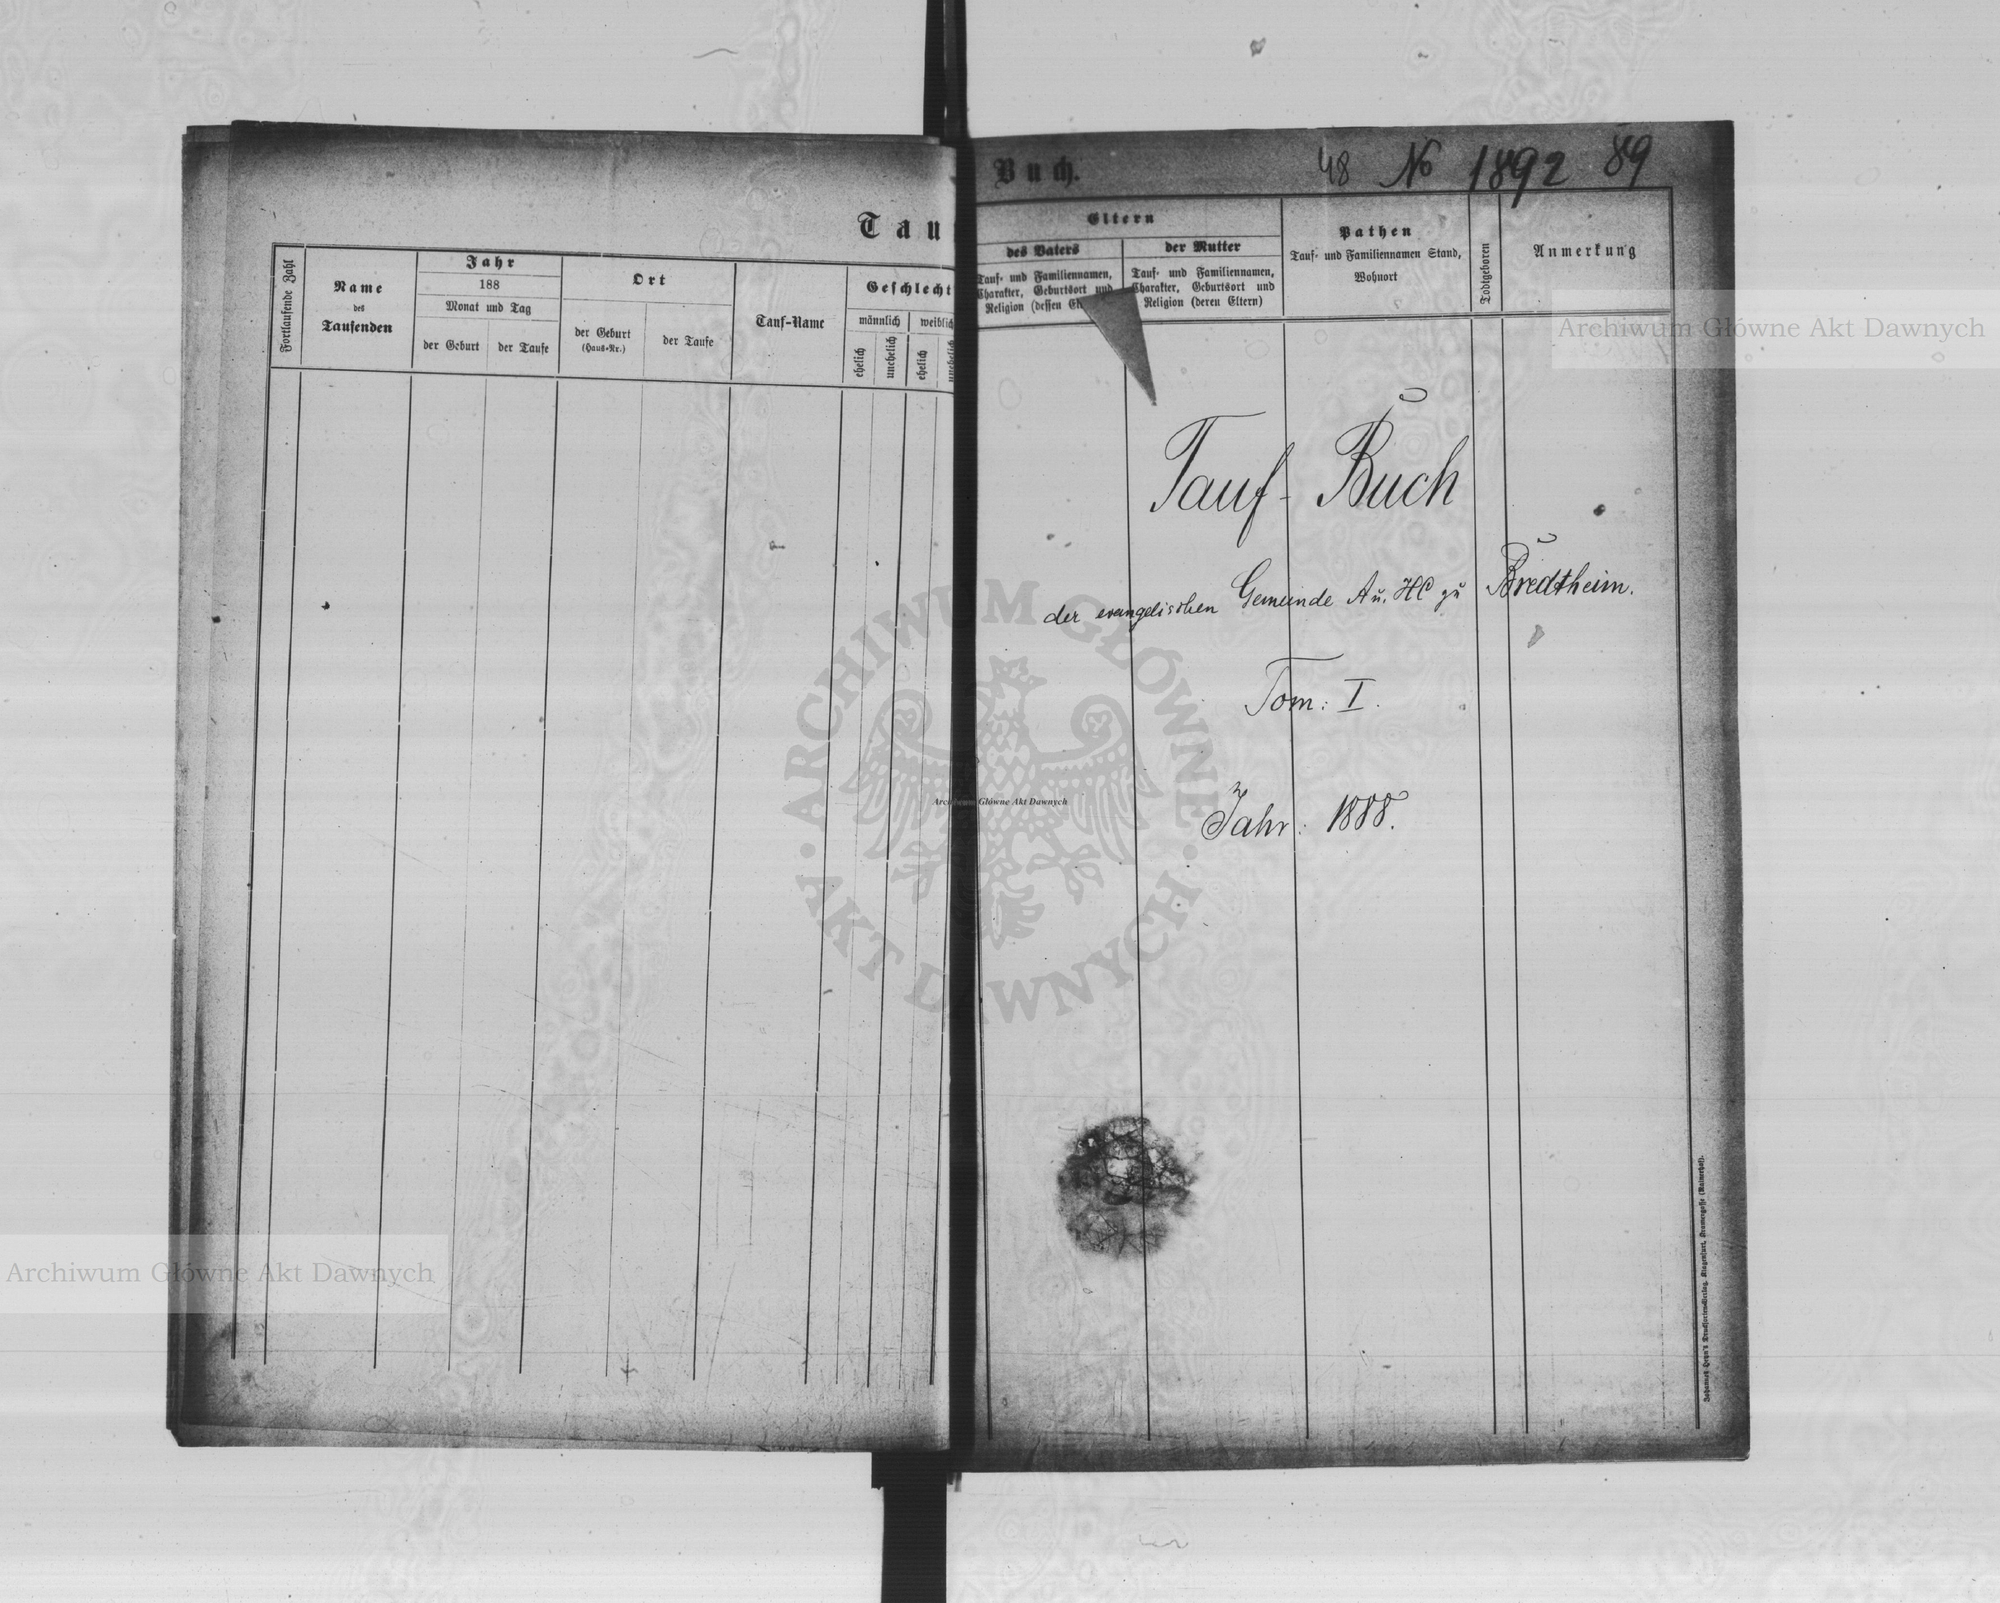 48 No 1892 89
Tau
Buch.
Fortlaufende Zahl
Name
des
Taufenden
Jahr
188
Monat und Tag
der Geburt
der Taufe
Ort
der Geburt
(Haus-Nr.)
der Taufe
Tauf-Name
Geschlecht
männlich
weiblich
ehelich
unehelich
ehelich
Eltern
des Vaters
Tauf- und Familiennamen,
Charakter, Geburtsort und
Religion (dessen
der Mutter
Tauf- und Familiennamen,
Charakter, Geburtsort und
Religion (deren Eltern)
Pathen
Tauf- und Familiennamen Stand,
Wohnort
Todtgeboren
Anmerkung
Tauf-Buch
der evangelischen Gemeinde A u. HC zu Bredtheim.
Tom: I.
Jahr: 1888.
ARCHIWUM GŁÓWNE
AKT DAWNYCH
Archiwum Główne Akt Dawnych
Archiwum Główne Akt Dawnych
Archiwum Główne Akt Dawnych